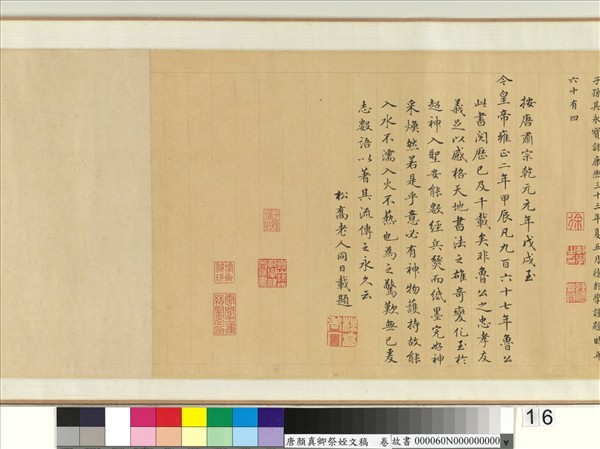 子孫其永寶諸康熙三十三年夏五月徐乾學謹題時年
六十有四
按唐肅宗乾元元年戊戌至
今皇帝雍正二年甲辰凡九百六十七年魯公
此書閱歷已及千載矣非魯公之忠孝友
義足以感格天地書法之雄奇變化至於
超神入聖安能數經兵燹而紙墨完好神
采煥然若是乎意必有神物護持故能
入水不濡入火不爇也為之驚歎無已爰
志數語以著其流傳之永久云
松喬老人同日載題
16
唐顏真卿祭姪文稿 卷 故書 000060N000000000
A